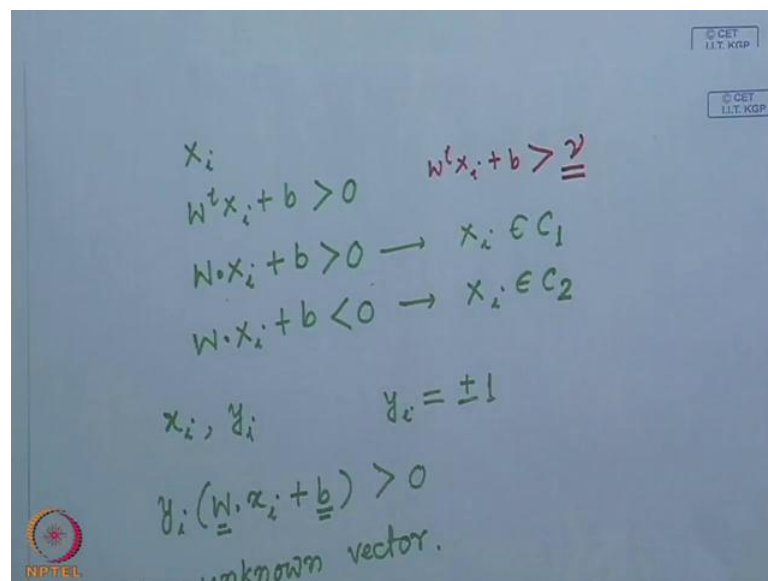 © CET
I.I.T. KGP
© CET
I.I.T. KGP
x_i
w^t x_i + b > 0
w^t x_i + b > γ
w·x_i + b > 0 → x_i ∈ C_1
w·x_i + b < 0 → x_i ∈ C_2
x_i, y_i y_i = ±1
y_i (w·x_i + b) > 0
unknown vector.
NPTEL